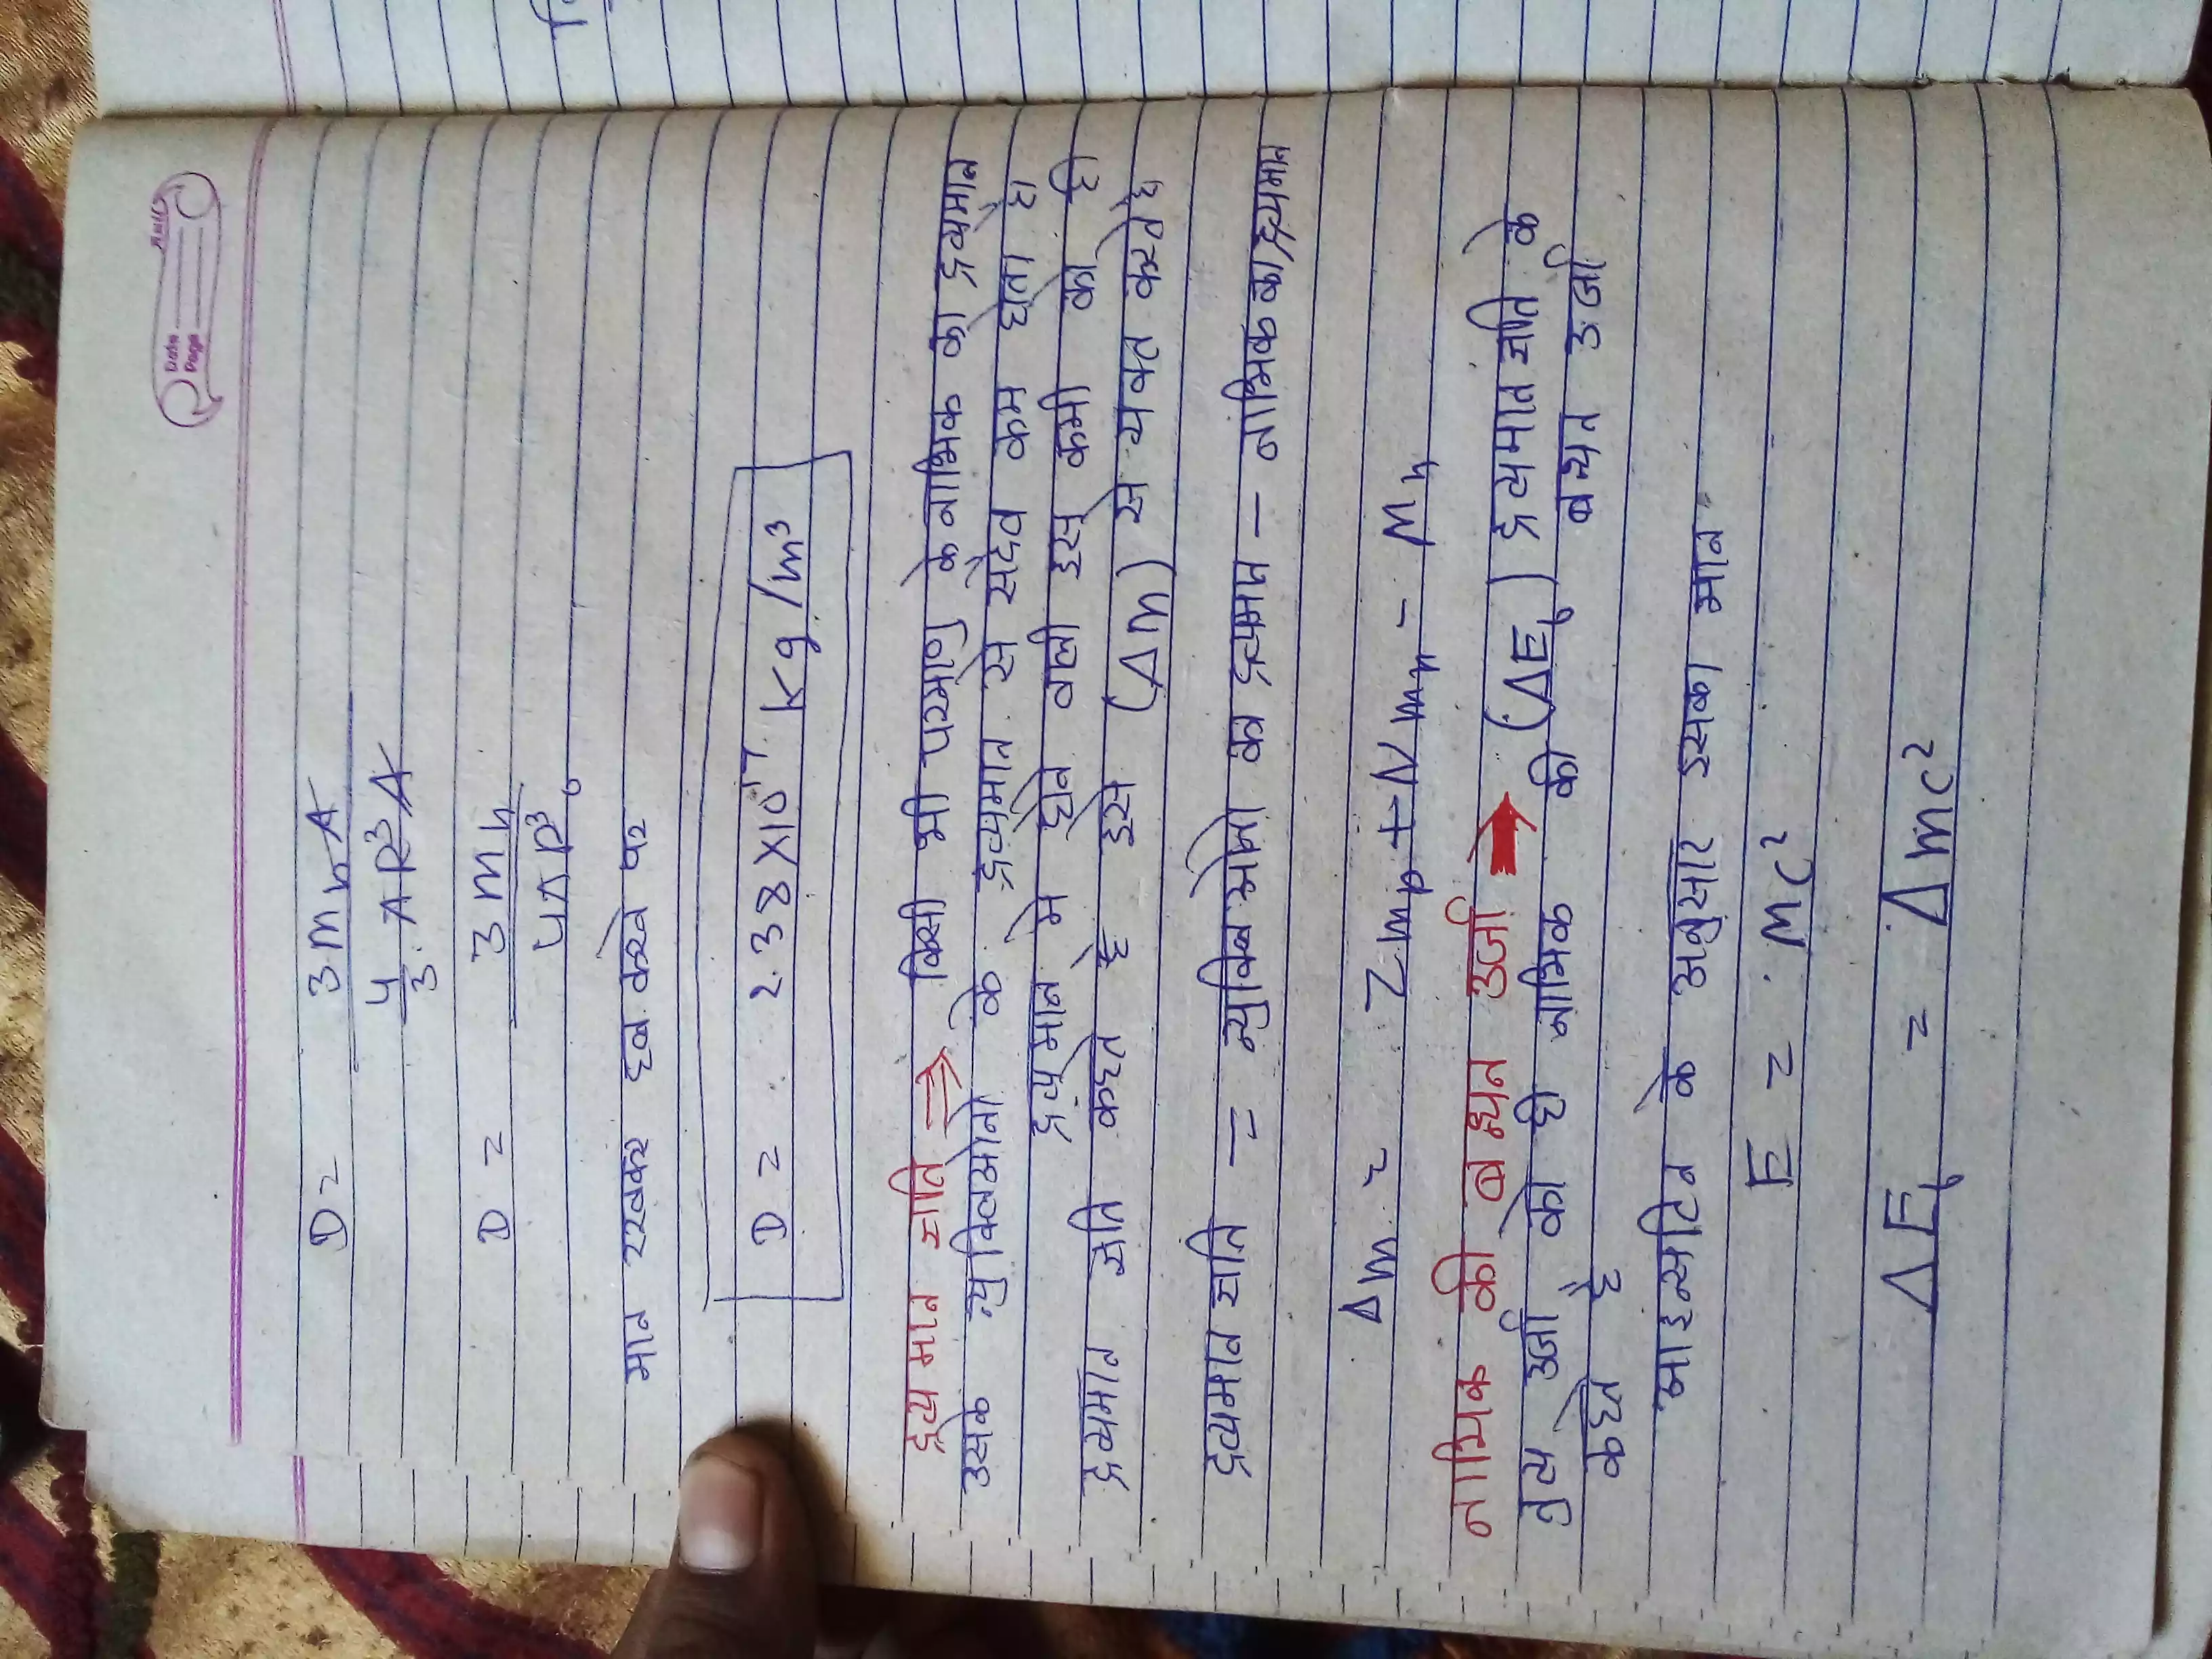 Date
Page
D = 3 mn A
4/3 π R³ A
D = 3 mn
4 π R³
मान रखकर हल करने पर
D = 2.38 X 10¹⁷ Kg/m³
द्रव्यमान क्षति ⇒ किसी भी परमाणु के नाभिक का द्रव्यमान
उसके न्युक्लिओनो के द्रव्यमान से सदैव कम होता है
द्रव्यमान मे होने वाली इस कमी को ही
द्रव्यमान क्षति कहते है इसे (Δm) से व्यक्त करते है
द्रव्यमान क्षति = न्युक्लिओनो का द्रव्यमान - नाभिक का द्रव्यमान
Δm = Zmp + Nmn - Mn
नाभिक की बन्धन उर्जा → (ΔEb) द्रव्यमान क्षति के
तुल्य उर्जा को ही नाभिक की बन्धन उर्जा
कहते है
आइन्सटिन के अनुसार इसका मान
E = MC²
ΔEb = Δmc²